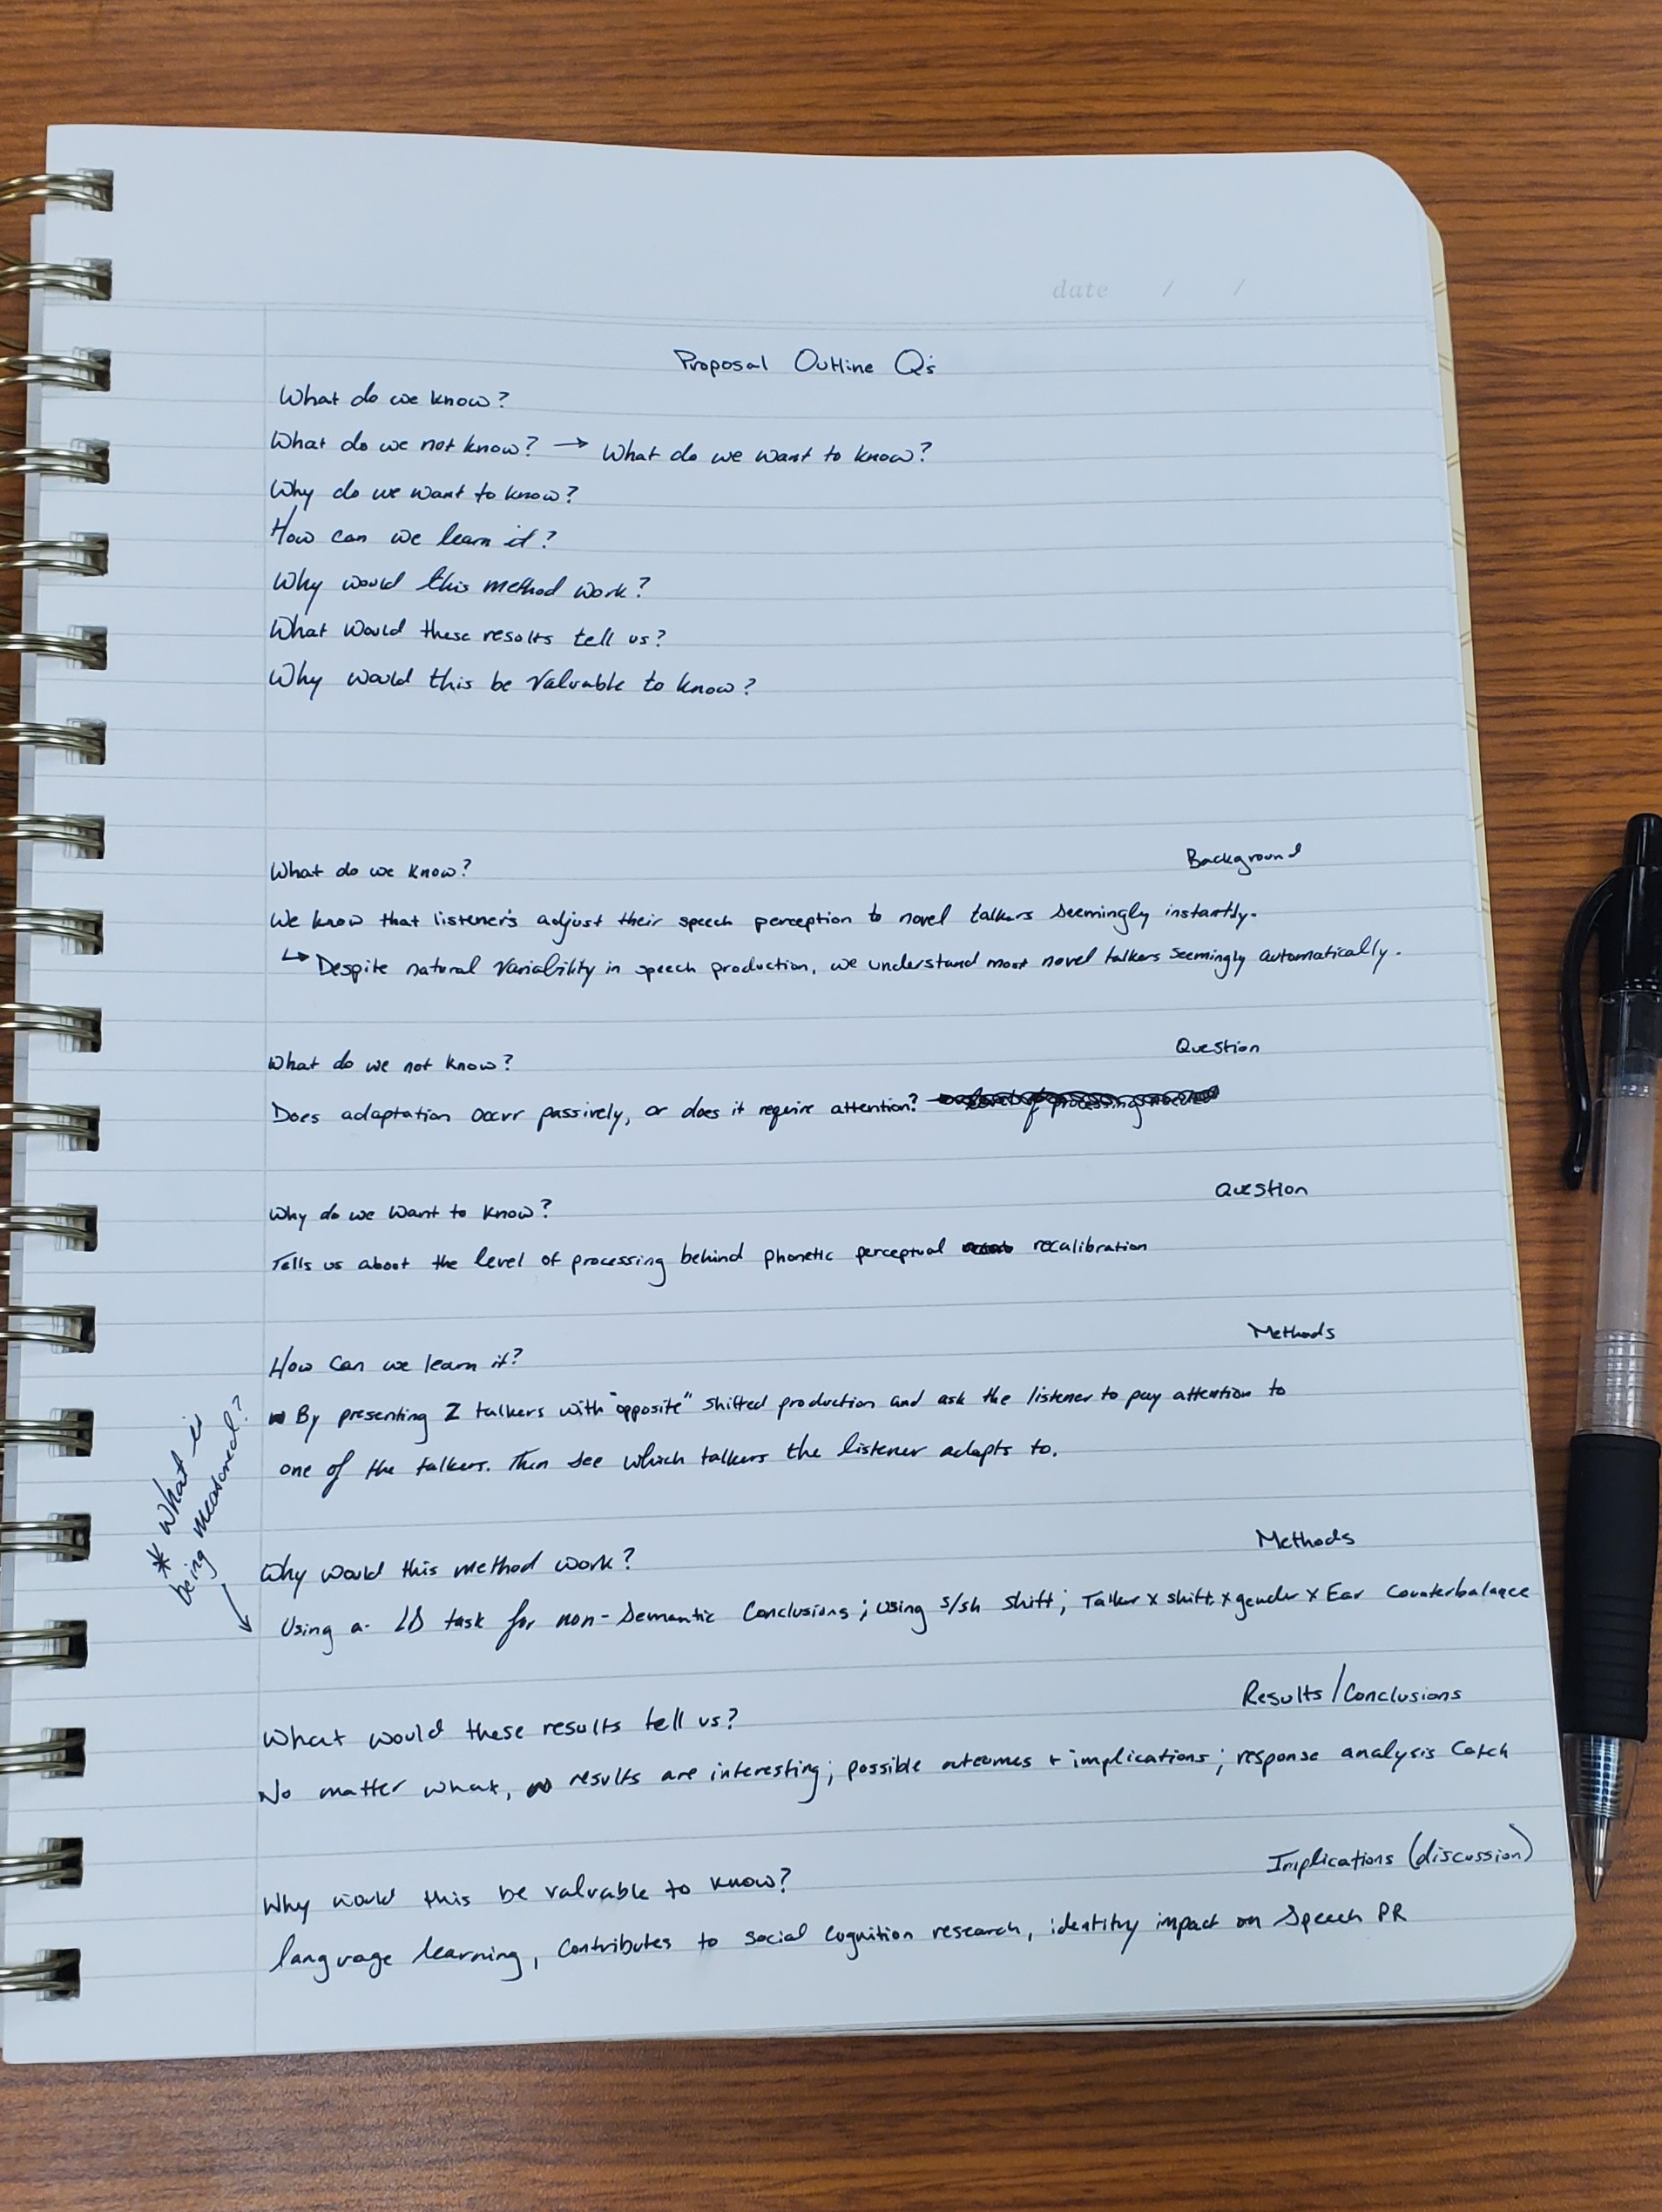 date / /
Proposal Outline Q's
What do we know?
What do we not know? → What do we want to know?
Why do we want to know?
How can we learn it?
Why would this method work?
What would these results tell us?
Why would this be valuable to know?
What do we know? Background
We know that listener's adjust their speech perception to novel talkers seemingly instantly.
↳ Despite natural variability in speech production, we understand most novel talkers seemingly automatically.
What do we not know? Question
Does adaptation occur passively, or does it require attention?
Why do we want to know? Question
Tells us about the level of processing behind phonetic perceptual recalibration
How can we learn it? Methods
By presenting 2 talkers with "opposite" shifted production and ask the listener to pay attention to
one of the talkers. Then see which talkers the listener adapts to.
* What is
being measured?
Why would this method work? Methods
Using a LD task for non-semantic conclusions; using s/sh shift; Talker x shift x gender x Ear counterbalance
What would these results tell us? Results/Conclusions
No matter what, results are interesting; possible outcomes + implications; response analysis catch
Why would this be valuable to know? Implications (discussion)
language learning, contributes to social cognition research, identity impact on speech PR